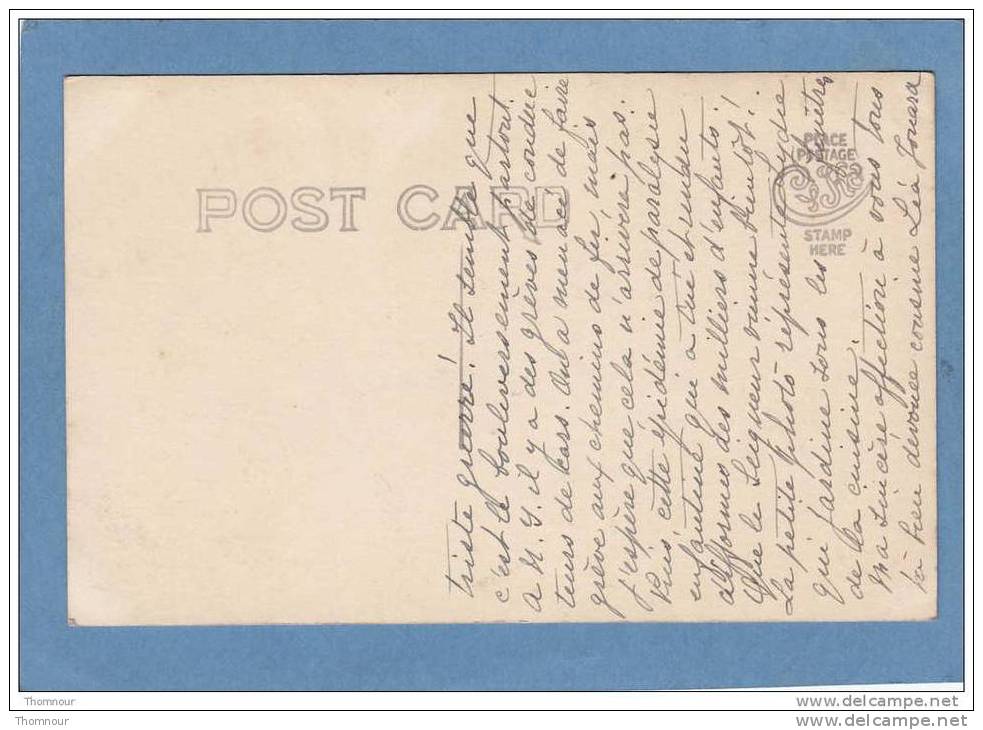 POST CARD
PLACE
POSTAGE
STAMP
HERE
triste guerre! Il semble que
c'est le bouleversement partout.
a N. Y. il y a des grèves de conduc
teurs de kars. On a menacé de faire
grève aux chemins de fer mais
j'espère que cela n'arrivera pas.
Puis cette épidémie de paralysie
enfantine qui a tué et rendu
difformes des milliers d'enfants!
Que le Seigneur vienne bientôt!
La petite photo représente Lydie
qui jardine sous les fenêtres
de la cuisine.
Ma sincère affection à vous tous
Ta bien dévouée cousine Léa Jouard
Thomnour
Thomnour
www.delcampe.net
www.delcampe.net